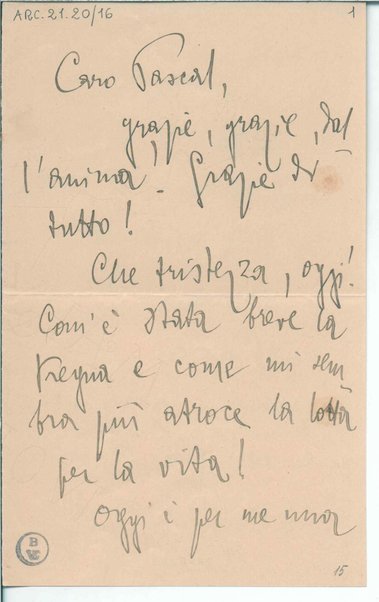 ARC.21.20/16
1
Caro Pascal,
grazie, grazie, dal
l'anima. Grazie di
tutto!
Che tristezza, oggi!
Com'è stata breve la
tregua e come mi sem
bra più atroce la lotta
per la vita!
Oggi è per me una
B
15